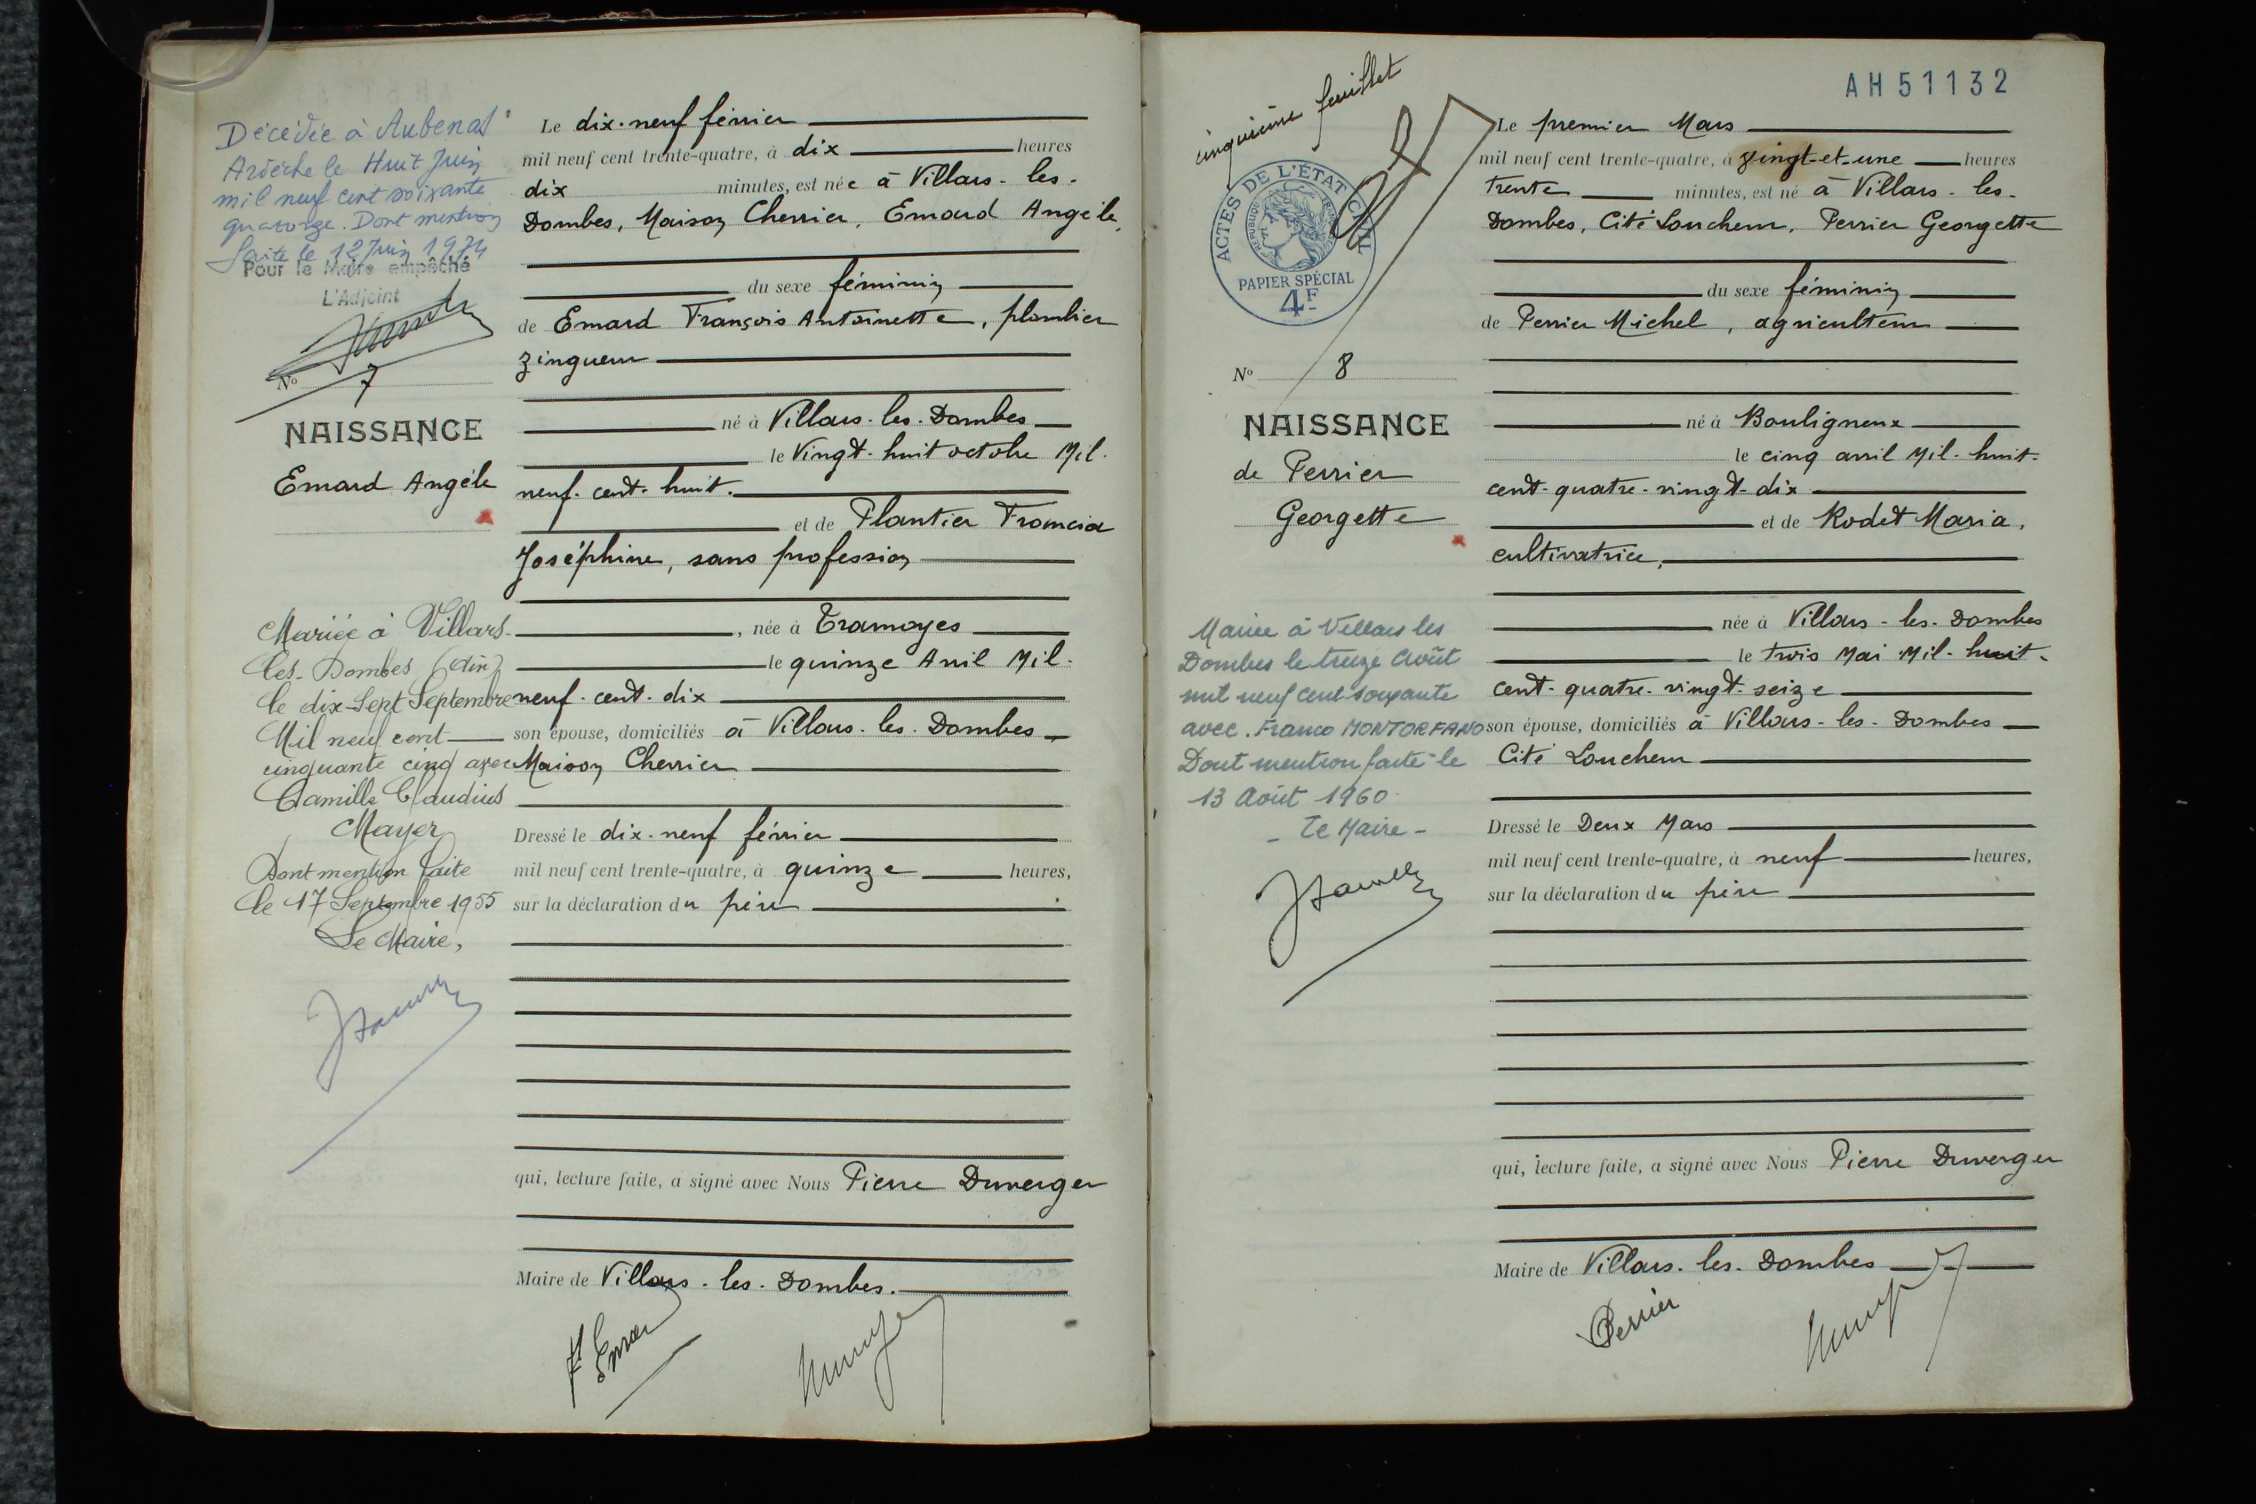 Décédée à Aubenas
Ardèche le Huit Juin
mil neuf cent soixante
quatorze. Dont mention
faite le 12 Juin 1974
Pour le Maire empêché
L'Adjoint
No 7
NAISSANCE
Emard Angèle
Mariée à Villars-
les-Dombes (Ain)
le dix-sept Septembre
Mil neuf cent
cinquante cinq avec
Camille Claudius
Mayer
Dont mention faite
le 17 Septembre 1955
Le Maire,
Le dix-neuf février
mil neuf cent trente-quatre, à dix heures
dix minutes, est née à Villars-les-
Dombes, Maison Cherrier, Emard Angèle,
du sexe féminin
de Emard François Antoinette, plombier
zingueur
né à Villars-les-Dombes
le Vingt-huit octobre Mil-
neuf-cent-huit.
et de Plantier Francia
Joséphine, sans profession
, née à Tramoyes
le quinze Avril Mil-
neuf-cent-dix
son épouse, domiciliés à Villars-les-Dombes
Maison Cherrier
Dressé le dix-neuf février
mil neuf cent trente-quatre, à quinze heures,
sur la déclaration du père
qui, lecture faite, a signé avec Nous Pierre Duverger
Maire de Villars-les-Dombes.
F Emard
cinquième feuillet
AH51132
ACTES DE L'ÉTAT CIVIL
PAPIER SPÉCIAL
4F
No 8
NAISSANCE
de Perrier
Georgette
Mariée à Villars les
Dombes le treize Août
mil neuf cent soixante
avec Franco MONTORFANO
Dont mention faite le
13 Août 1960
- Le Maire -
Le premier Mars
mil neuf cent trente-quatre, à vingt-et-une heures
trente minutes, est né à Villars-les-
Dombes, Cité Loucheur, Perrier Georgette
du sexe féminin
de Perrier Michel, agriculteur
né à Bouligneux
le cinq avril Mil-huit-
cent-quatre-vingt-dix
et de Rodet Maria,
cultivatrice,
née à Villars-les-Dombes
le trois Mai Mil-huit-
cent-quatre-vingt-seize
son épouse, domiciliés à Villars-les-Dombes
Cité Loucheur
Dressé le Deux Mars
mil neuf cent trente-quatre, à neuf heures,
sur la déclaration du père
qui, lecture faite, a signé avec Nous Pierre Duverger
Maire de Villars-les-Dombes
Perrier